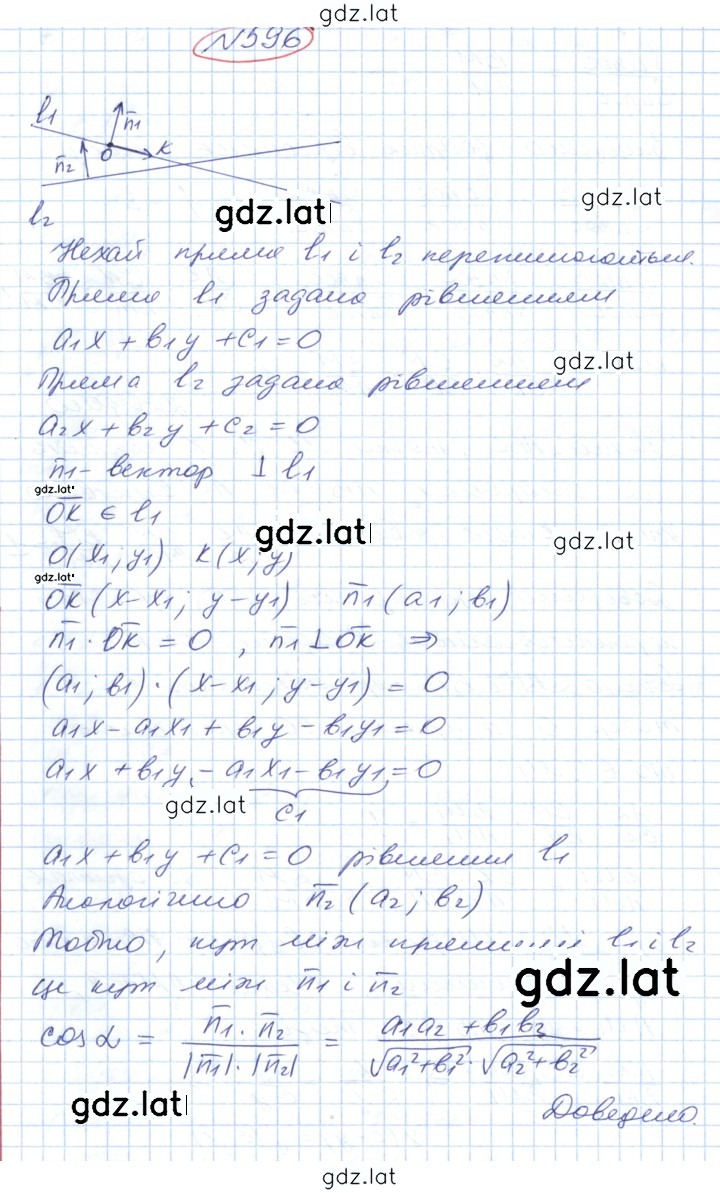 gdz.lat
№596
l₁
n̄₁
O
K
n̄₂
gdz.lat
l₂
gdz.lat
Нехай прямо l₁ і l₂ перетинаються.
Пряма l₁ задано рівнянням
a₁x + b₁y + c₁ = 0
gdz.lat
Пряма l₂ задано рівнянням
a₂x + b₂y + c₂ = 0
n̄₁ - вектор ⊥ l₁
gdz.lat
OK ∈ l₁
gdz.lat
gdz.lat
O(x₁; y₁) K(x; y)
gdz.lat
OK (x-x₁; y-y₁) n̄₁(a₁; b₁)
n̄₁ · OK = 0, n̄₁ ⊥ OK ⇒
(a₁; b₁) · (x-x₁; y-y₁) = 0
a₁x - a₁x₁ + b₁y - b₁y₁ = 0
a₁x + b₁y - a₁x₁ - b₁y₁ = 0
gdz.lat
c₁
a₁x + b₁y + c₁ = 0 рівняння l₁
Аналогічно n̄₂ (a₂; b₂)
Тобто, кут між прямими l₁ і l₂
це кут між n̄₁ і n̄₂
gdz.lat
cos α = n̄₁ · n̄₂ / |n̄₁| · |n̄₂| = a₁a₂ + b₁b₂ / √a₁²+b₁² · √a₂²+b₂²
gdz.lat
Доведено.
gdz.lat